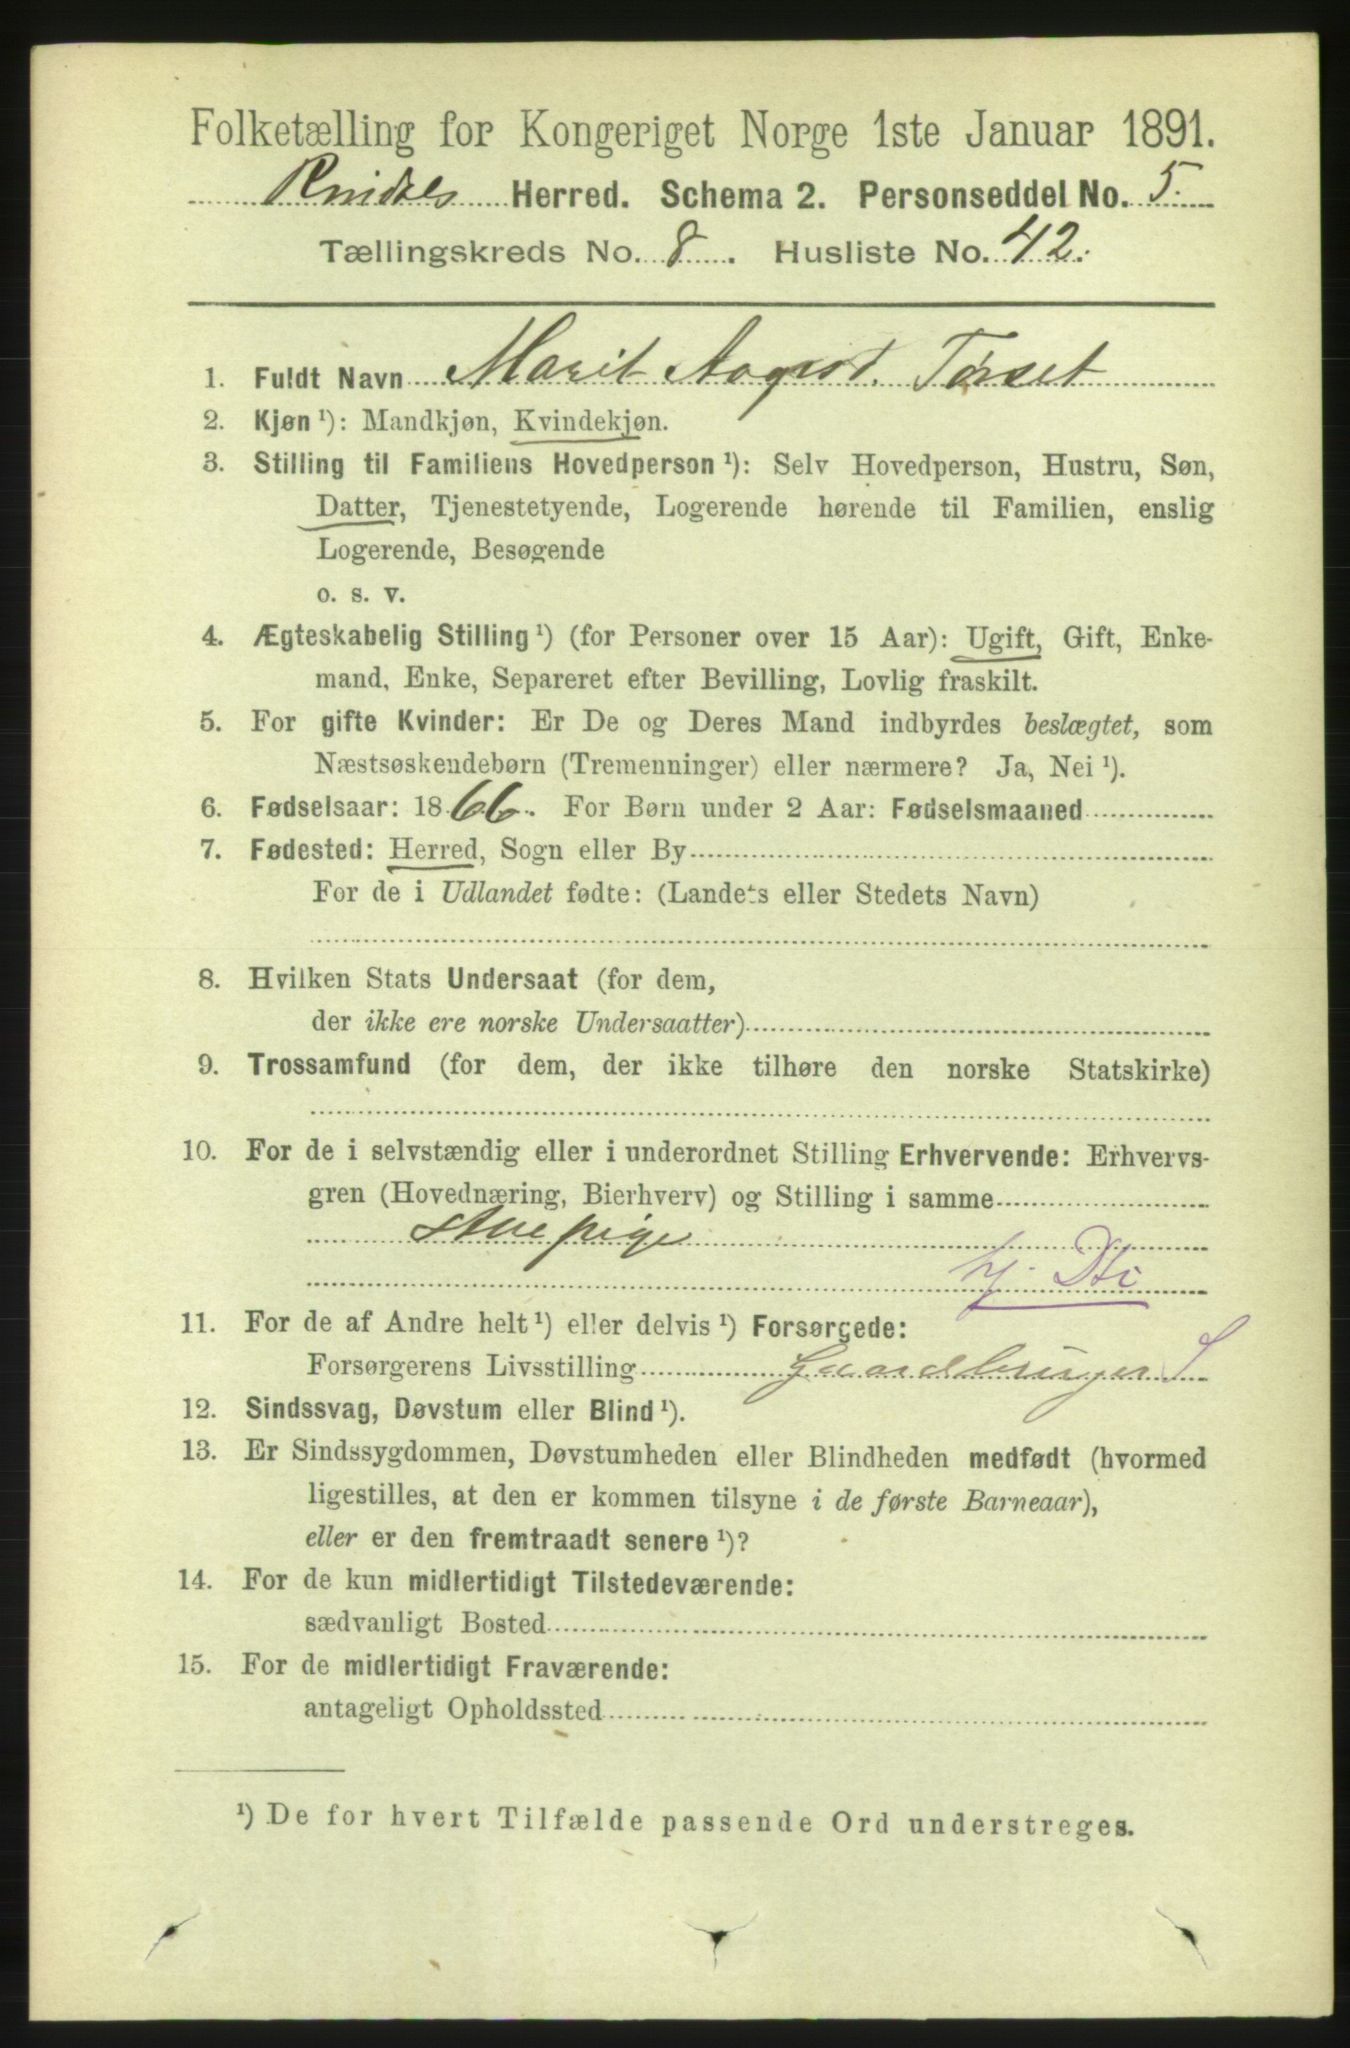 Folketælling for Kongeriget Norge 1ste Januar 1891.
Rindals Herred. Schema 2. Personseddel No. 5.
Tællingskreds No. 8. Husliste No. 42.
1. Fuldt Navn Marit Aagesd. Tørset
2. Kjøn ¹): Mandkjøn, Kvindekjøn.
3. Stilling til Familiens Hovedperson ¹): Selv Hovedperson, Hustru, Søn,
Datter, Tjenestetyende, Logerende hørende til Familien, enslig
Logerende, Besøgende
o. s. v.
4. Ægteskabelig Stilling ¹) (for Personer over 15 Aar): Ugift, Gift, Enke-
mand, Enke, Separeret efter Bevilling, Lovlig fraskilt.
5. For gifte Kvinder: Er De og Deres Mand indbyrdes beslægtet, som
Næstsøskendebørn (Tremenninger) eller nærmere? Ja, Nei ¹).
6. Fødselsaar: 1866. For Børn under 2 Aar: Fødselsmaaned
7. Fødested: Herred, Sogn eller By
For de i Udlandet fødte: (Landets eller Stedets Navn)
8. Hvilken Stats Undersaat (for dem,
der ikke ere norske Undersaatter)
9. Trossamfund (for dem, der ikke tilhøre den norske Statskirke)
10. For de i selvstændig eller i underordnet Stilling Erhvervende: Erhvervs-
gren (Hovednæring, Bierhverv) og Stilling i samme
Stuepige
11. For de af Andre helt ¹) eller delvis ¹) Forsørgede:
Forsørgerens Livsstilling Gaardbruger S
12. Sindssvag, Døvstum eller Blind ¹).
13. Er Sindssygdommen, Døvstumheden eller Blindheden medfødt (hvormed
ligestilles, at den er kommen tilsyne i de første Barneaar),
eller er den fremtraadt senere ¹)?
14. For de kun midlertidigt Tilstedeværende:
sædvanligt Bosted
15. For de midlertidigt Fraværende:
antageligt Opholdssted
¹) De for hvert Tilfælde passende Ord understreges.